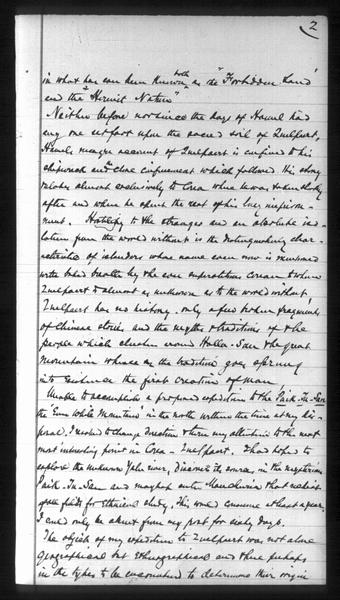 2
in what has ever been known both as the "Forbidden Land"
and the "Hermit Nation"
Neither before nor since the days of Hamel had
any one set foot upon the sacred soil of Quelpart,
Hamel's meagre account of Quelpart is confined to his
shipwreck and close confinement which followed. His story
relates almost exclusively to Corea where he was taken shortly
after and where he spent the rest of his long imprison-
ment. Hostility to the stranger and an absolute iso-
lation from the world without is the distinguishing char-
acteristic of islanders whose name even now is mentioned
with bated breath by the even superstitious Corean to whom
Quelpart is almost as unknown as to the world without.
Quelpart has no history, only a few broken fragments
of Chinese stories and the myths & traditions of the
people which cluster round Halla-San the great
mountain whence as the tradition goes sprung
into existence the first creation of man.
Unable to accomplish a proposed expedition to the Paik-Tu-San
the "Ever White Mountain" in the north within the time at my dis-
posal, I resolved to change direction & turn my attention to the next
most interesting point in Corea - Quelpart. I had hoped to
explore the unknown Yalu river, discover its source, in the mysterious
Paik-Tu-San and perhaps enter Manchuria that richest
of all fields for ethnical study. This would consume at least a year.
I could only be absent from my post for sixty days.
The objects of my expedition to Quelpart was not alone
geographical but ethnographical and there perhaps
in the types to be encountered to determine their origin